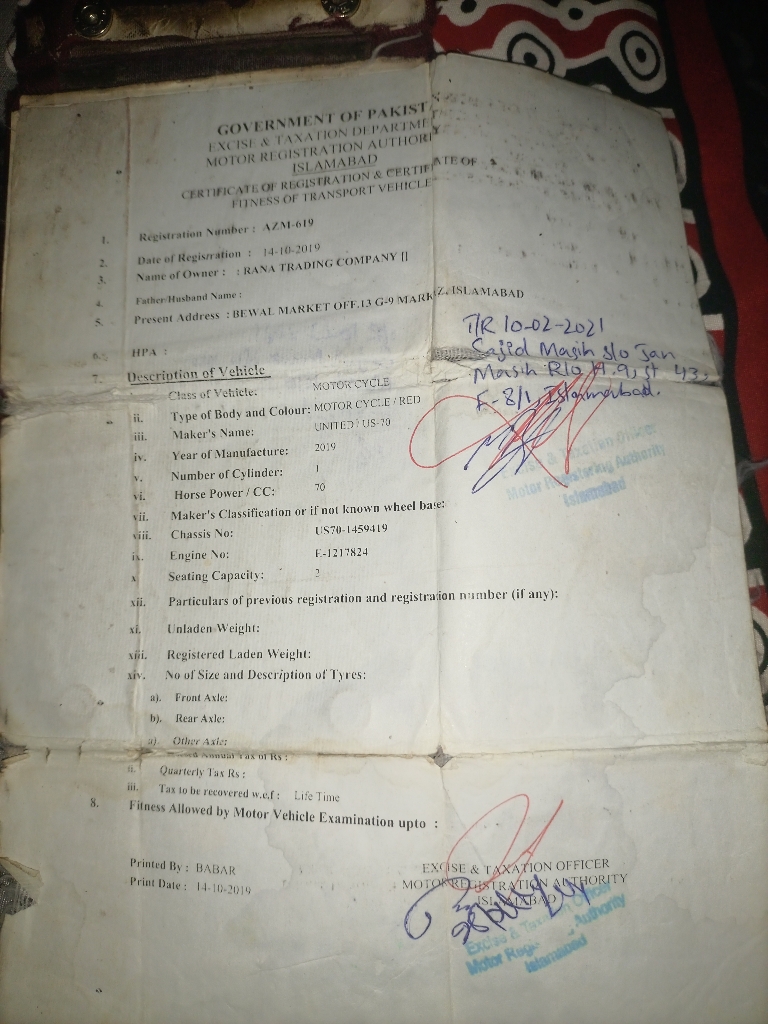 GOVERNMENT OF PAKIST
EXCISE & TAXATION DEPARTME
MOTOR REGISTRATION AUTHORITY
ISLAMABAD
CERTIFICATE OF REGISTRATION & CERTIFICATE OF
FITNESS OF TRANSPORT VEHICLE
1. Registration Number : AZM-619
2. Date of Registration : 14-10-2019
3. Name of Owner : : RANA TRADING COMPANY []
4. Father/Husband Name :
5. Present Address : BEWAL MARKET OFF.13 G-9 MARKAZ, ISLAMABAD
6. HPA :
T/R 10-02-2021
Sajid Masih S/o Jan
Masih R/o H.9, st 43,
F-8/1, Islamabad.
7. Description of Vehicle
Class of Vehicle: MOTOR CYCLE
ii. Type of Body and Colour: MOTOR CYCLE / RED
iii. Maker's Name: UNITED / US-70
iv. Year of Manufacture: 2019
v. Number of Cylinder: 1
vi. Horse Power / CC: 70
Excise & Taxation Officer
Motor Registering Authority
Islamabad
vii. Maker's Classification or if not known wheel base:
viii. Chassis No: US70-1459419
ix. Engine No: E-1217824
x Seating Capacity: 2
xii. Particulars of previous registration and registration number (if any):
xi. Unladen Weight:
xiii. Registered Laden Weight:
xiv. No of Size and Description of Tyres:
a). Front Axle:
b). Rear Axle:
a). Other Axle:
Annual Tax of Rs :
ii. Quarterly Tax Rs :
iii. Tax to be recovered w.e.f : Life Time
8. Fitness Allowed by Motor Vehicle Examination upto :
Printed By : BABAR
Print Date : 14-10-2019
EXCISE & TAXATION OFFICER
MOTOR REGISTRATION AUTHORITY
ISLAMABAD
Excise & Taxation Officer
Motor Reg Authority
Islamabad